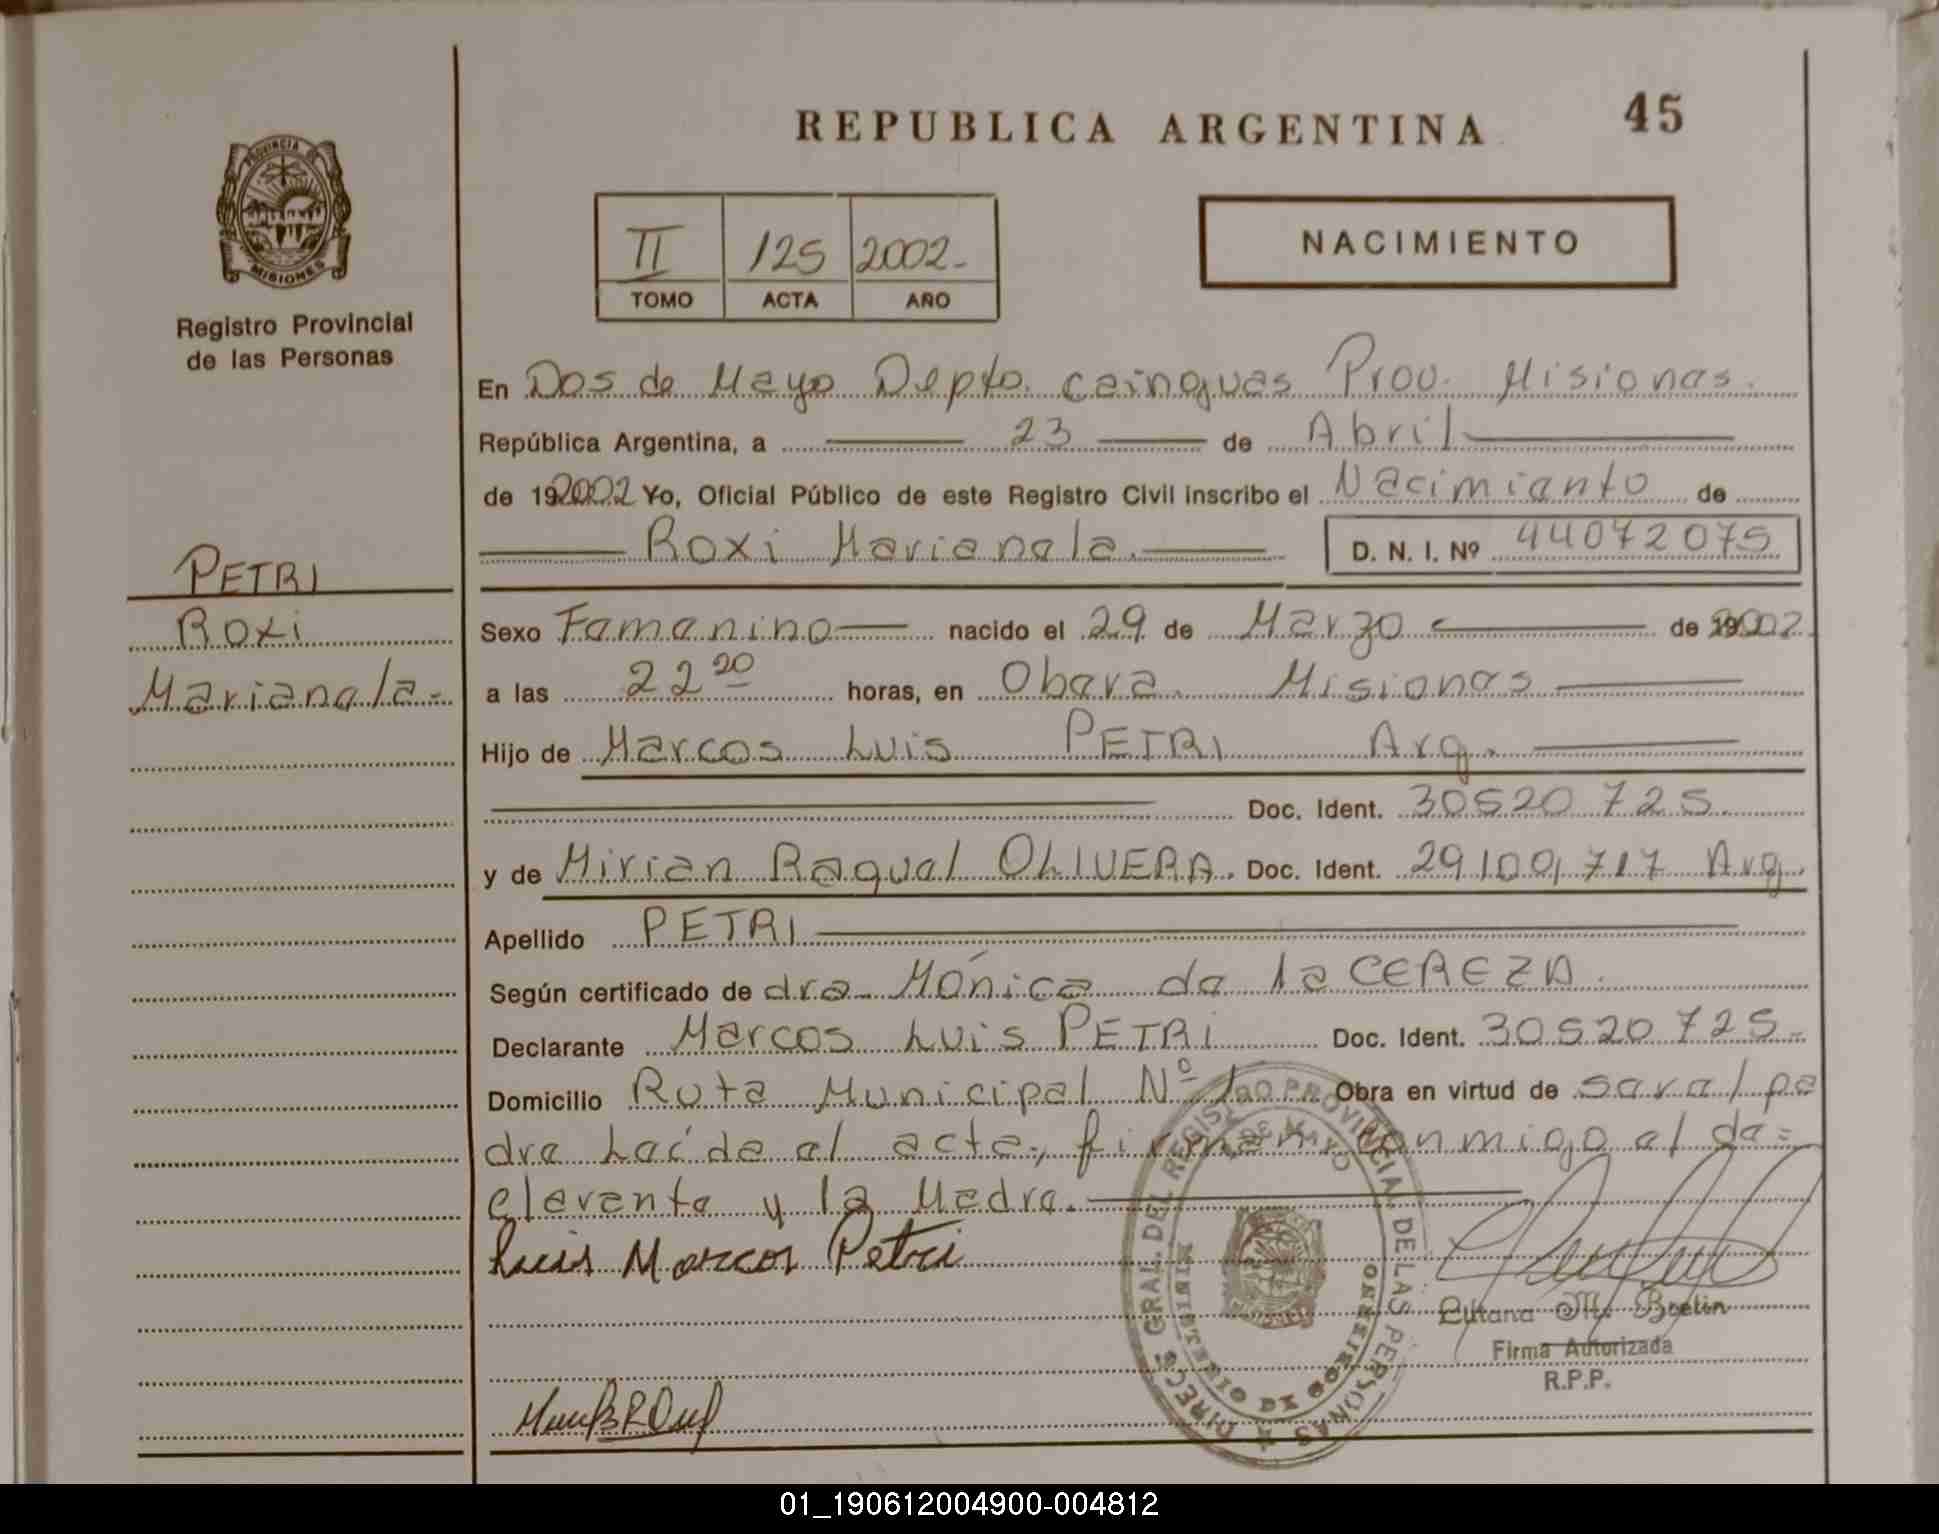 REPUBLICA ARGENTINA
45
PROVINCIA DE
MISIONES
Registro Provincial
de las Personas
II 125 2002-
TOMO ACTA AÑO
NACIMIENTO
En Dos de Mayo Depto. Cainguas Prov. Misiones.
República Argentina, a 23 de Abril
de 192002 Yo, Oficial Público de este Registro Civil inscribo el Nacimiento de
Roxi Marianela. D. N. I. Nº 44072075
PETRI
Roxi
Marianela.-
Sexo Femenino nacido el 29 de Marzo de 2002.
a las 22 20 horas, en Obera Misiones
Hijo de Marcos Luis PETRI Arg.
Doc. Ident. 30520725
y de Mirian Raquel OLIVERA. Doc. Ident. 29.100.717 Arg.
Apellido PETRI
Según certificado de dra. Mónica de la CEREZA.
Declarante Marcos Luis PETRI Doc. Ident. 30520725.
Domicilio Ruta Municipal Nº 1 Obra en virtud de ser el pa
dre Leída el acta, firman conmigo el de=
clarante y la Madre.
Luis Marcos Petri
DIREC. GRAL. DEL REGISTRO PROVINCIAL DE LAS PERSONAS
2 DE MAYO
MINISTERIO DE GOBIERNO
M. Boelin
Firma Autorizada
R.P.P.
01_190612004900-004812